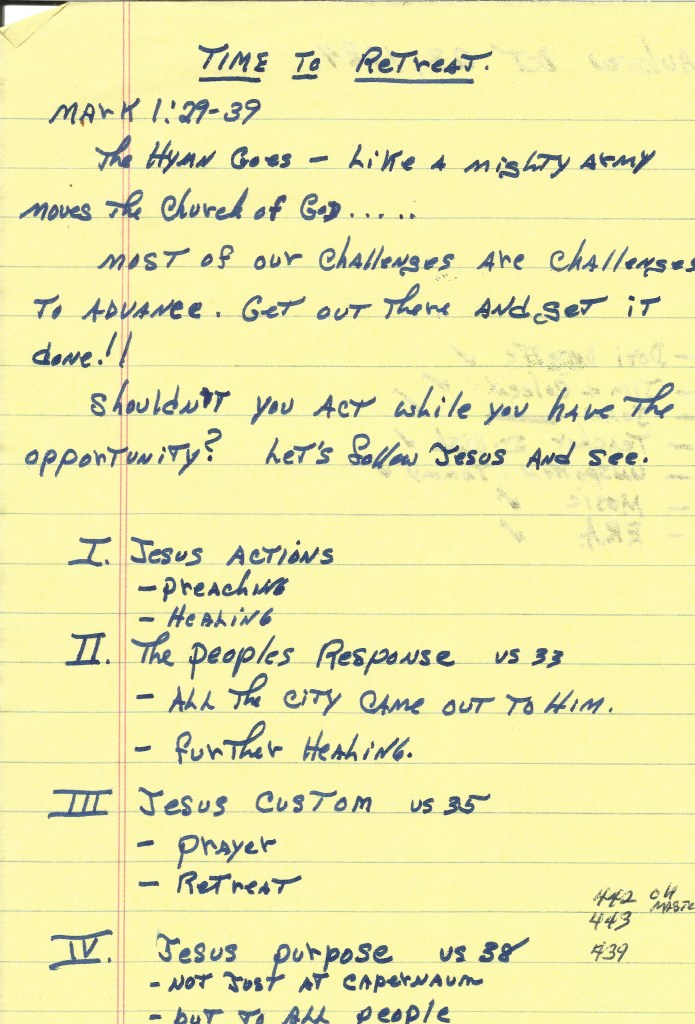 Time To Retreat.
Mark 1:29-39
The Hymn Goes - Like a mighty army
moves The Church of God.....
most of our Challenges are Challenges
To Advance. Get out There and get it
done!!
Shouldn't you Act while you have The
opportunity? Let's follow Jesus And see.
I. Jesus Actions
- preaching
- Healing
II. The peoples Response vs 33
- All The City Came out To Him.
- further Healing.
III Jesus Custom vs 35
- prayer
- Retreat
442 OH
Maste
443
IV. Jesus purpose vs 38
439
- not Just at Capernaum
- but To All people